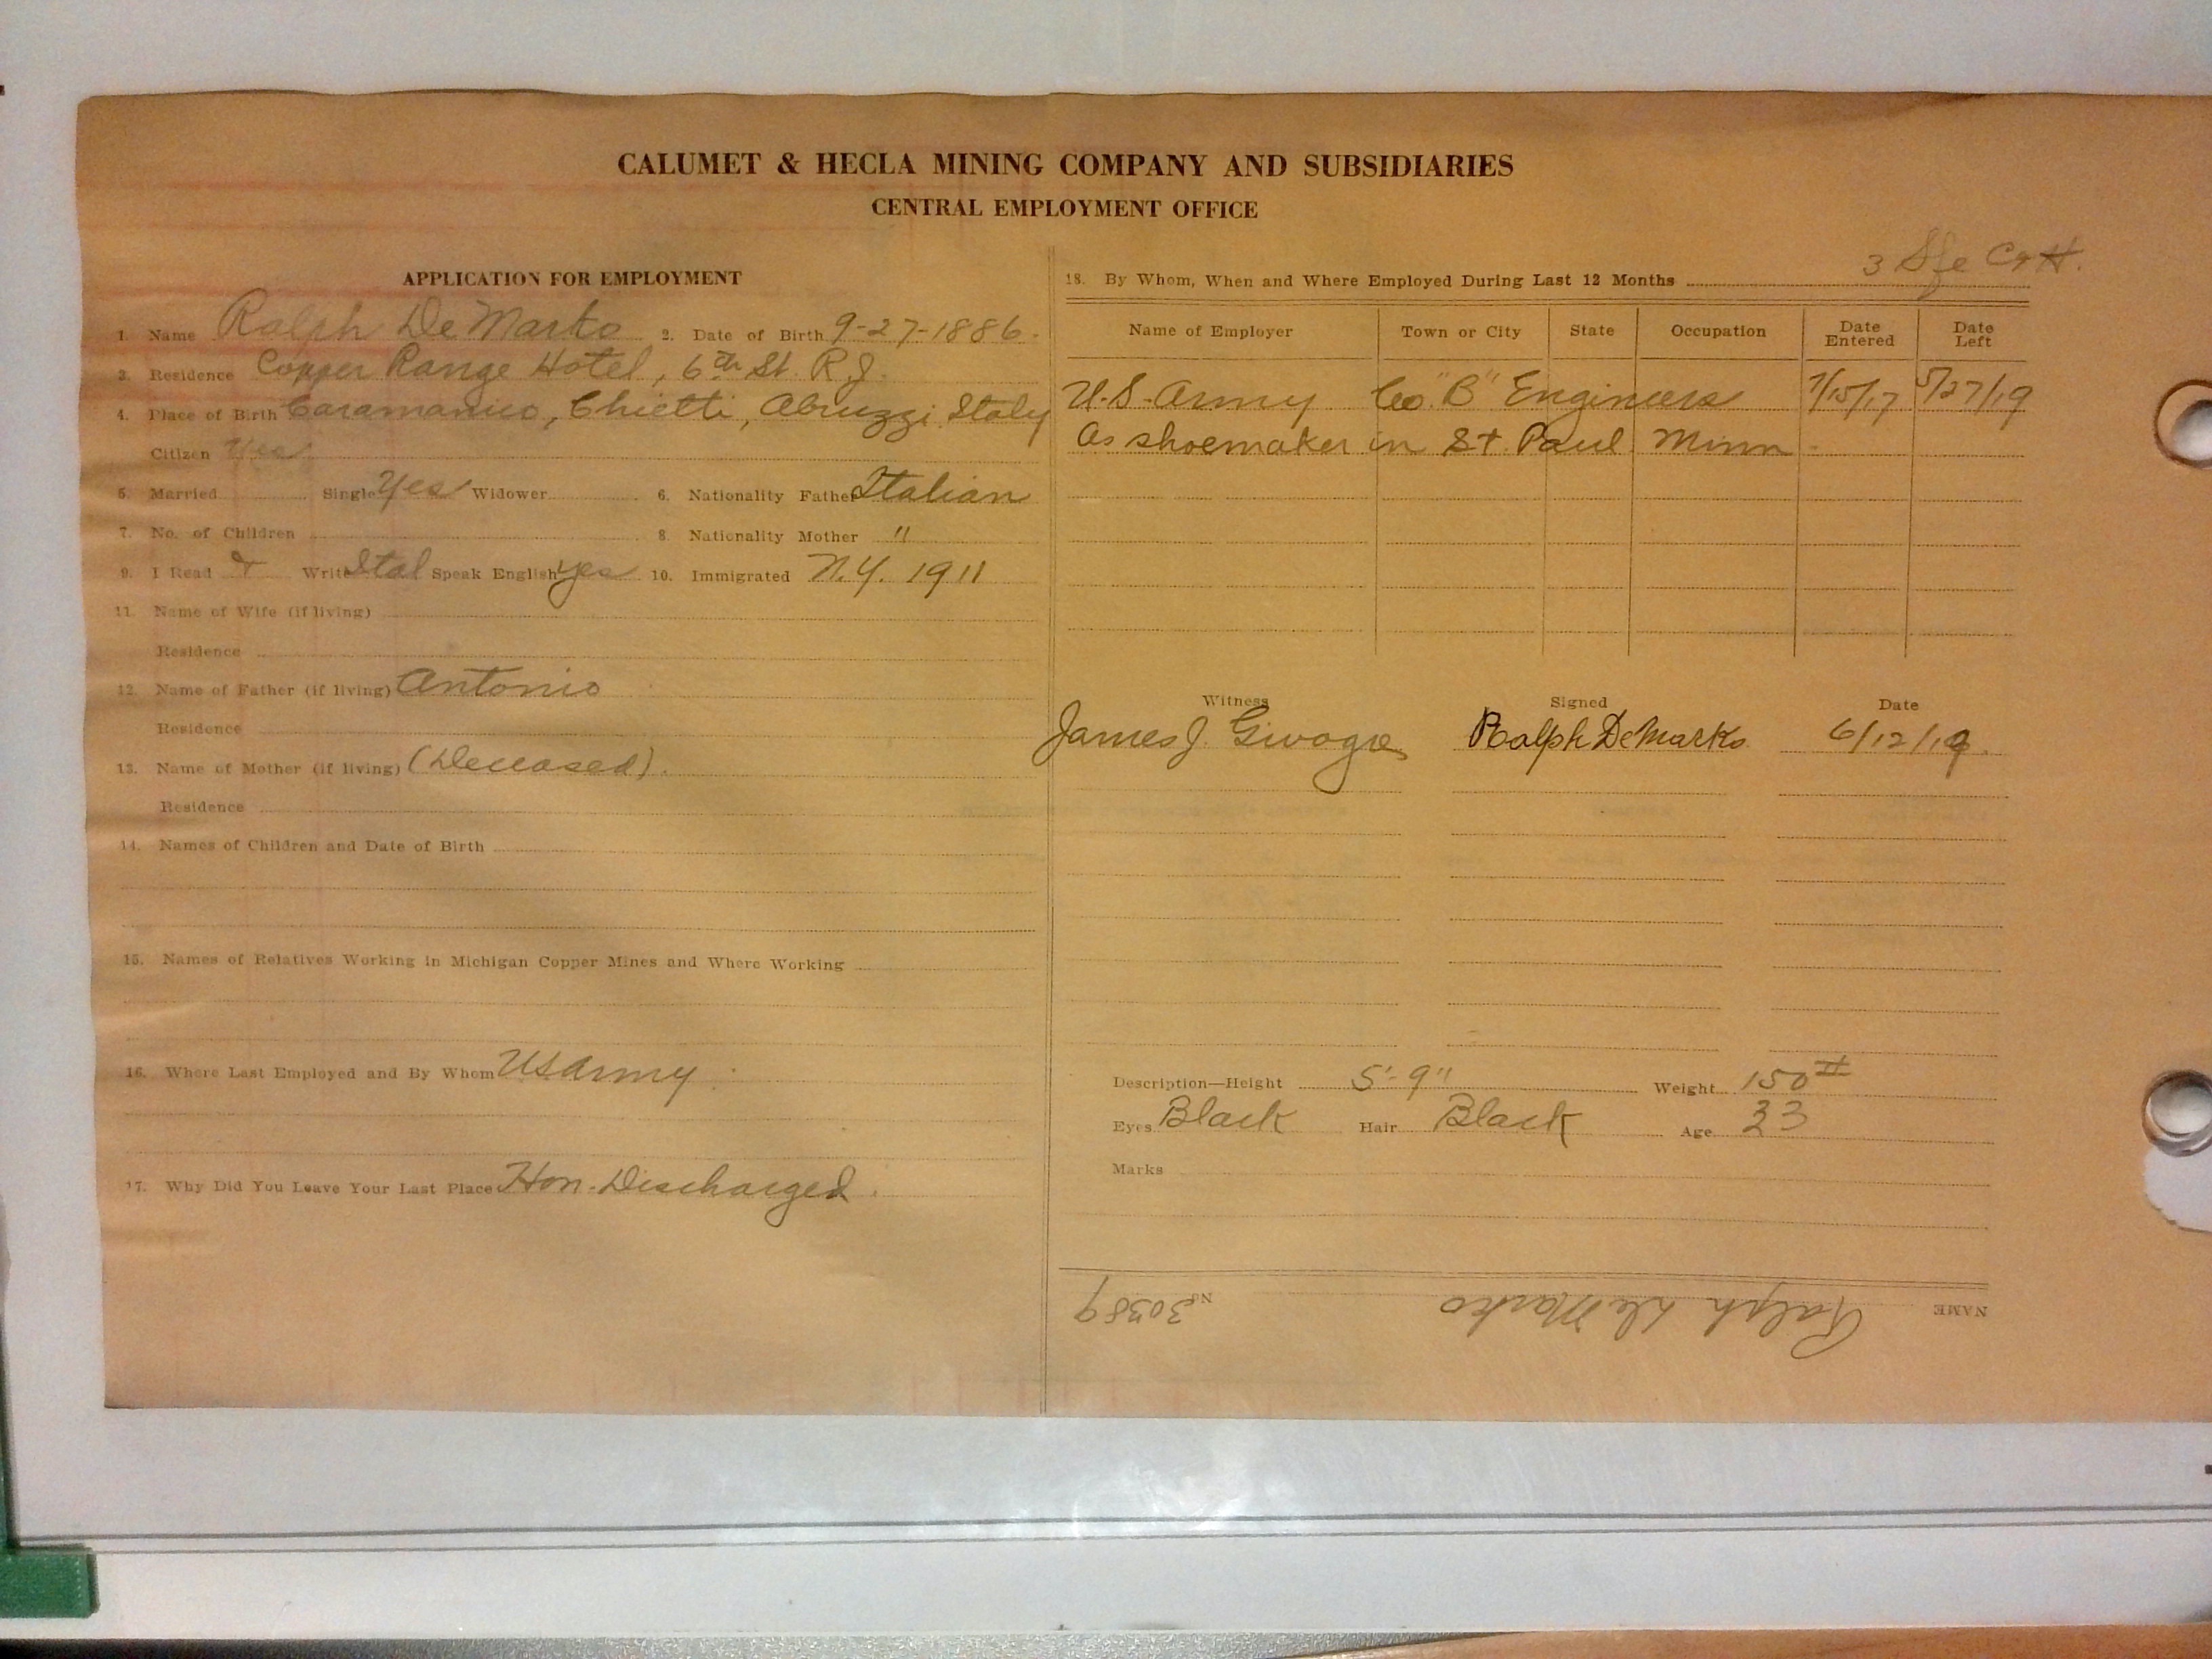 CALUMET & HECLA MINING COMPANY AND SUBSIDIARIES
CENTRAL EMPLOYMENT OFFICE
APPLICATION FOR EMPLOYMENT
1. Name Ralph De Marko 2. Date of Birth 9-27-1886.
3. Residence Copper Range Hotel, 6th St. R.J.
4. Place of Birth Caramanico, Chietti, Abruzzi, Italy
Citizen Yes
5. Married Single Yes Widower 6. Nationality Father Italian
7. No. of Children 8. Nationality Mother "
9. I Read & Write Ital Speak English yes 10. Immigrated N.Y. 1911
11. Name of Wife (if living)
Residence
12. Name of Father (if living) Antonio
Residence
13. Name of Mother (if living) (Deceased).
Residence
14. Names of Children and Date of Birth
15. Names of Relatives Working in Michigan Copper Mines and Where Working
16. Where Last Employed and By Whom US Army
17. Why Did You Leave Your Last Place Hon-Discharged.
3 C & H.
18. By Whom, When and Where Employed During Last 12 Months
Name of Employer Town or City State Occupation Date Entered Date Left
U.S. Army Co. "B" Engineers 7/15/17 5/27/19
As shoemaker in St. Paul Minn.
Witness Signed Date
James J. Ralph DeMarko 6/12/19.
Description—Height 5'-9" Weight 150#
Eyes Black Hair Black Age 33
Marks
NAME Ralph De Marko No. 30389